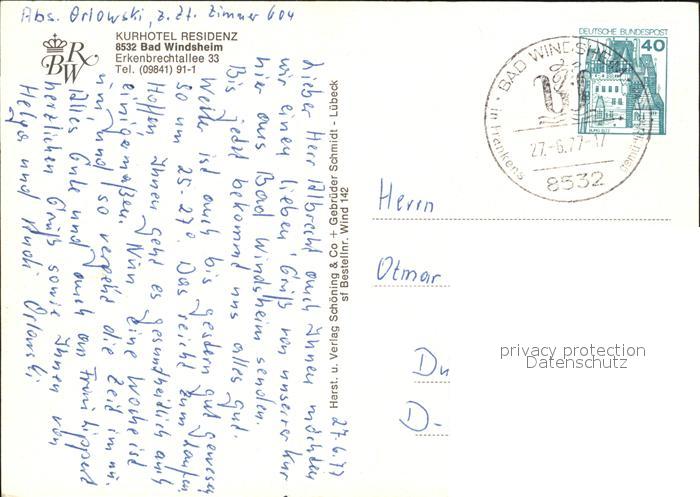 Abs. Orlowski, z. Zt. Zimmer 604
KURHOTEL RESIDENZ
8532 Bad Windsheim
Erkenbrechtallee 33
Tel. (09841) 91-1
RBW
27.6.77
Lieber Herr Albrecht auch Ihnen möchten
wir einen lieben Gruß von unserer Kur
hier aus Bad Windsheim senden.
Bis jetzt bekommt uns alles gut.
Wetter ist auch bis gestern gut gewesen
so um 25-27°. Das reicht zum Laufen.
Hoffen Ihnen geht es gesundheitlich auch
einigermaßen. Nun eine Woche ist
rum und so vergeht die Zeit im nu.
Alles Gute und auch an Frau
herzlichen Gruß sowie Ihnen von
Helga und Rudi Orlowski
Herst. u. Verlag Schöning & Co + Gebrüder Schmidt - Lübeck
sf Bestellnr. Wind 142
DEUTSCHE BUNDESPOST
40
BURG ELTZ
BAD WINDSHEIM
in Frankens
27.-6.77-17
8532
Herrn
Otmar
Du
D-
privacy protection
Datenschutz